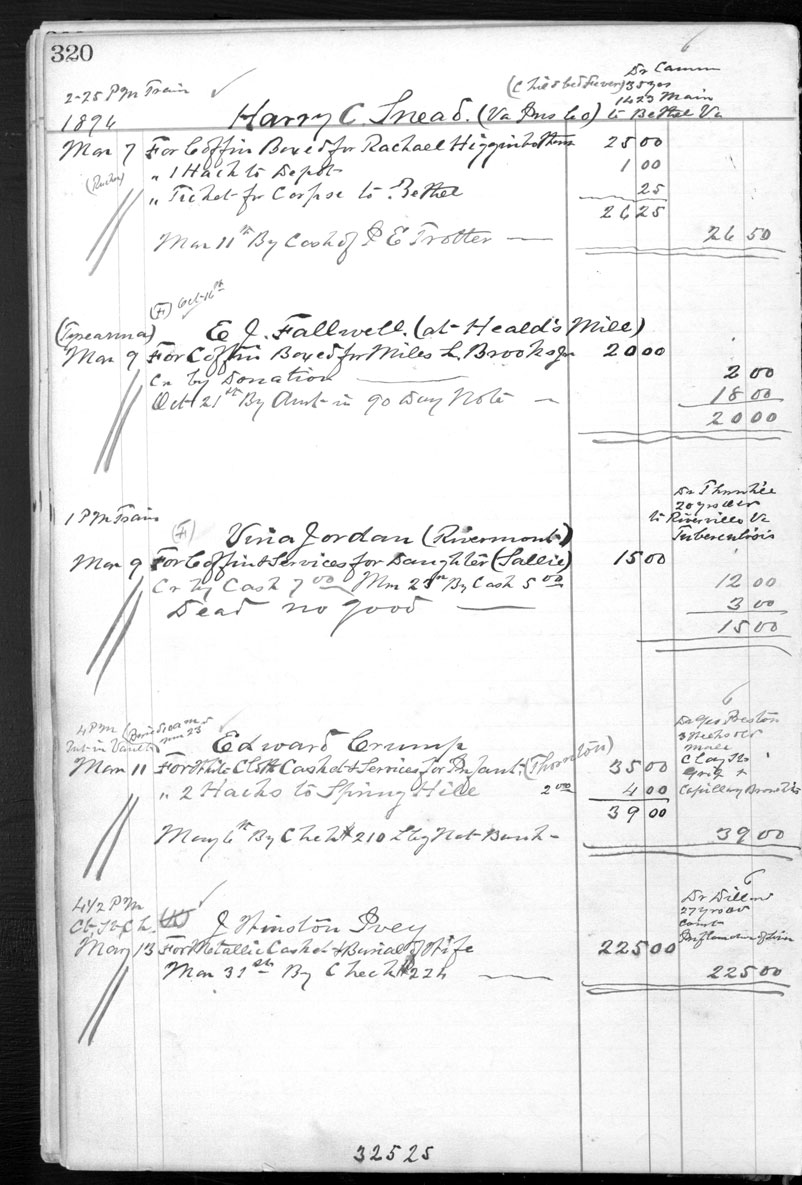 320
2-25 PM Train
(Childbed Fever)
Dr Camm
35 yrs
1423 Main
to Bethel Va
1896 Harry C. Snead. (Va Ins Co)
Mar 7 For Coffin Boxed for Rachael Higginbotham 25 00
(Rucker) " 1 Hack to Depot 1 00
" Ticket for Corpse to Bethel 25
26 25
Mar 11th By Cash of P E Trotter 26 50
(F) Oct 16th
E J. Fallwell. (at Heald's Mill)
Mar 9 For Coffin Boxed for Miles L. Brooks Jr 20 00
Cr by Donation 2 00
Oct 21st By Amt in 90 Day Note 18 00
20 00
Dr Thornhill
20 yrs old
to Riverville Va
Tuberculosis
1 PM Train
(F) Vina Jordan (Rivermont)
Mar 9 For Coffin & Services for Daughter (Sallie) 15 00
Cr by Cash 7 00 Mar 23rd By Cash 5 00 12 00
Dead no good 3 00
15 00
4 PM (Buried 10 am
Mar 23
Put in Vault
Dr Geo Preston
3 Weeks old
Male
Clay St
Grip &
Capillary Bronchitis
Edward Crump
Mar 11 For White Cloth Casket & Services for Infant (Thornton) 35 00
" 2 Hacks to Spring Hill 2 00 4 00
39 00
May 6th By Check # 210 Lbg Nat Bank 39 00
Dr Dillard
27 yrs old
4 1/2 PM
J Winston Ivey
Mar 13 For Metallic Casket & Burial of Wife 225 00
Mar 31st By Check # 224 225 00
325 25